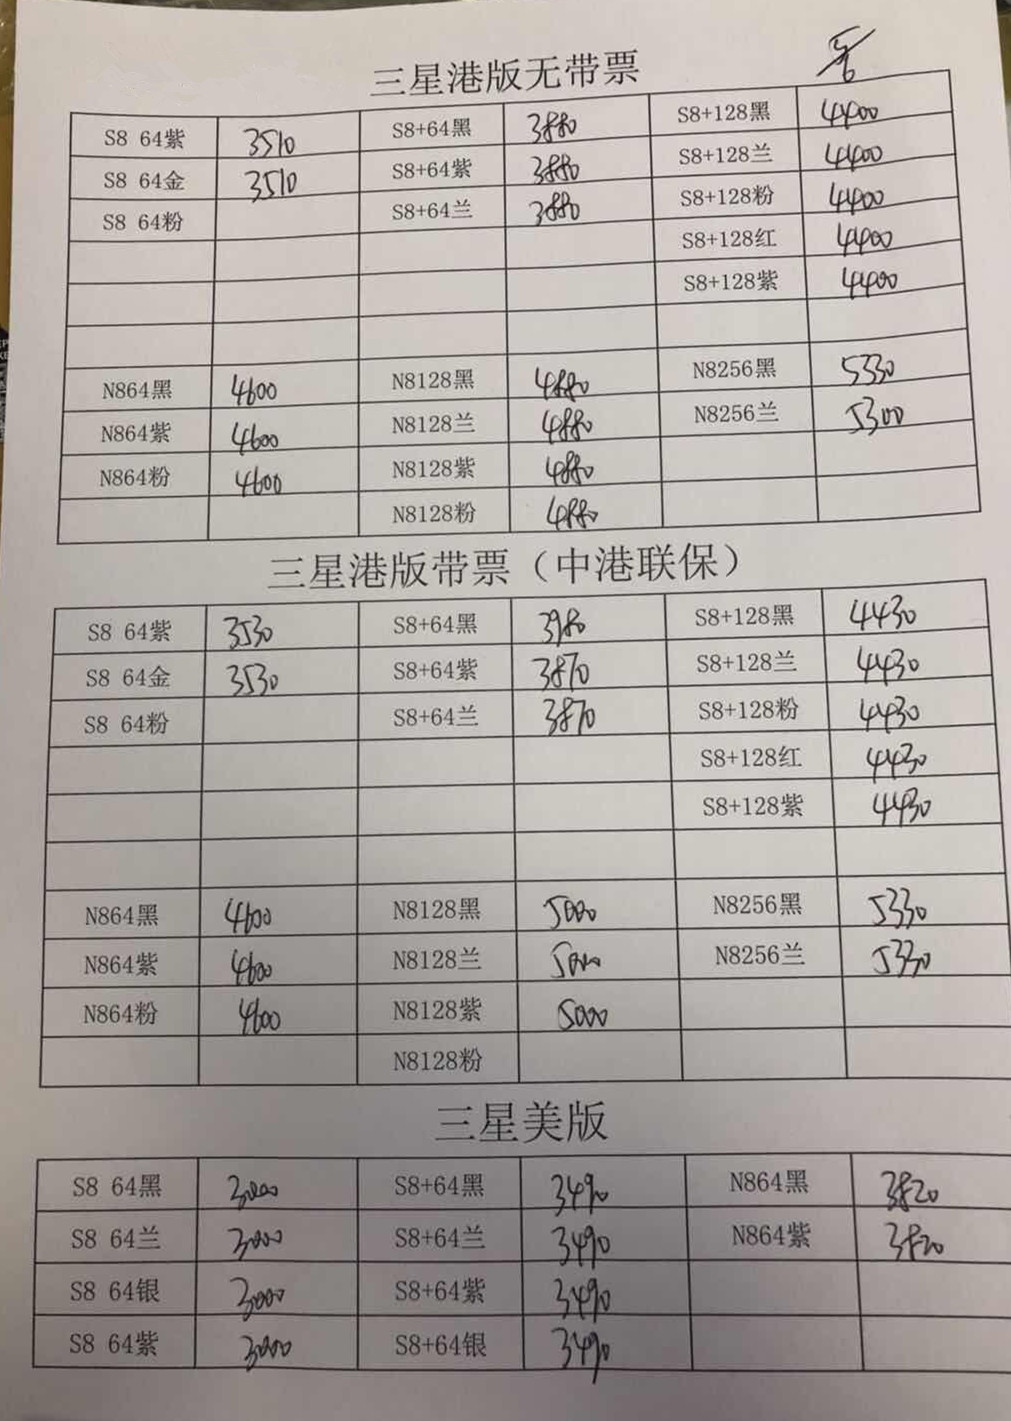 三星港版无带票
S8 64紫 3510 S8+64黑 3880 S8+128黑 4400
S8 64金 3510 S8+64紫 3880 S8+128兰 4400
S8 64粉 S8+64兰 3880 S8+128粉 4400
S8+128红 4400
S8+128紫 4400
N864黑 4600 N8128黑 4880 N8256黑 5330
N864紫 4600 N8128兰 4880 N8256兰 5300
N864粉 4600 N8128紫 4880
N8128粉 4880
三星港版带票（中港联保）
S8 64紫 3530 S8+64黑 3980 S8+128黑 4430
S8 64金 3530 S8+64紫 3870 S8+128兰 4430
S8 64粉 S8+64兰 3870 S8+128粉 4430
S8+128红 4430
S8+128紫 4430
N864黑 4600 N8128黑 5000 N8256黑 5330
N864紫 4600 N8128兰 5000 N8256兰 5330
N864粉 4600 N8128紫 5000
N8128粉
三星美版
S8 64黑 3000 S8+64黑 3490 N864黑 3820
S8 64兰 3000 S8+64兰 3490 N864紫 3820
S8 64银 3000 S8+64紫 3490
S8 64紫 3000 S8+64银 3490